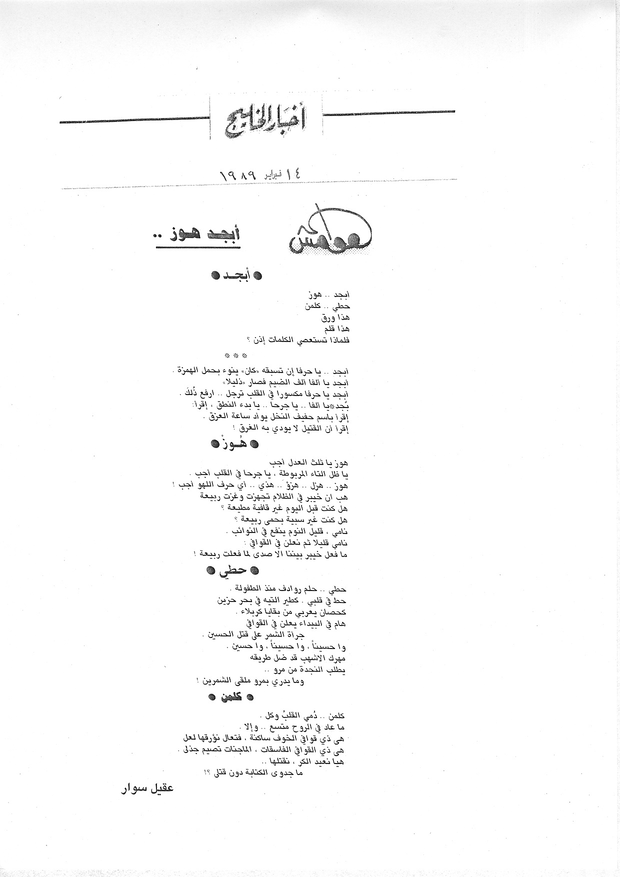 أخبار الخليج
١٤ فبراير ١٩٨٩
هوامش
أبجد هوز ..
● أبجد ●
أبجد .. هوز
حطي .. كلمن
هذا ورق
هذا قلم
فلماذا تستعصي الكلمات إذن ؟
* * *
أبجد .. يا حرفا إن تسبقه ،كان، ينوء بحمل الهمزة .
أبجد يا ألفا ألف الضيم فصار ،ذليلا،
أبجد يا حرفا مكسورا في القلب ترجل .. ارفع ذُلك .
يا ألفا .. يا جرحا .. يا بدء النطق ، إقرأ:
إقرأ باسم حفيف النخل يوأد ساعة العزق .
إقرأ أن القتيل لا يودي به الغرق !
● هُوز ●
هوز يا ثلث العدل أجب
يا ظل التاء المربوطة ، يا جرحا في القلب أجب .
هوز .. هزل .. هزؤ .. هذي .. أي حرف اللهو أجب !
هب ان خيبر في الظلام تجهزت وغزت ربيعة
هل كنت قبل اليوم غير قافية مطيعة ؟
هل كنت غير سبية بحمى ربيعة ؟
نامي ، قليل النوم ينفع في النوائب .
نامي قليلا ثم نعلن في القوافي :
ما فعل خيبر بيننا الا صدى لما فعلت ربيعة !
● حطي ●
حطي .. حلم روادف منذ الطفولة .
حط في قلبي . كطير التيه في بحر حزين
كحصان يعربي من بقايا كربلاء .
هام في البيداء يعلن في القوافي
جرأة الشمر على قتل الحسين .
وا حسيناً ، وا حسيناً ، وا حسين .
مهرك الأشهب قد ضل طريقه
يطلب النجدة من مرو ..
وما يدري بمرو ملقى الشمرين !
● كلمن ●
كلمن .. دُمي القلبُ وكل .
ما عاد في الروح متسع .. وإلا .
هى ذي قوافي الخوف ساكنة ، فتعال نؤرقها لعل
هى ذي القوافي الفاسقات ، الماجنات تصيم جذلى .
هيا نعيد الكر ، نقتلها ..
ما جدوى الكتابة دون قتلى ؟!
عقيل سوار